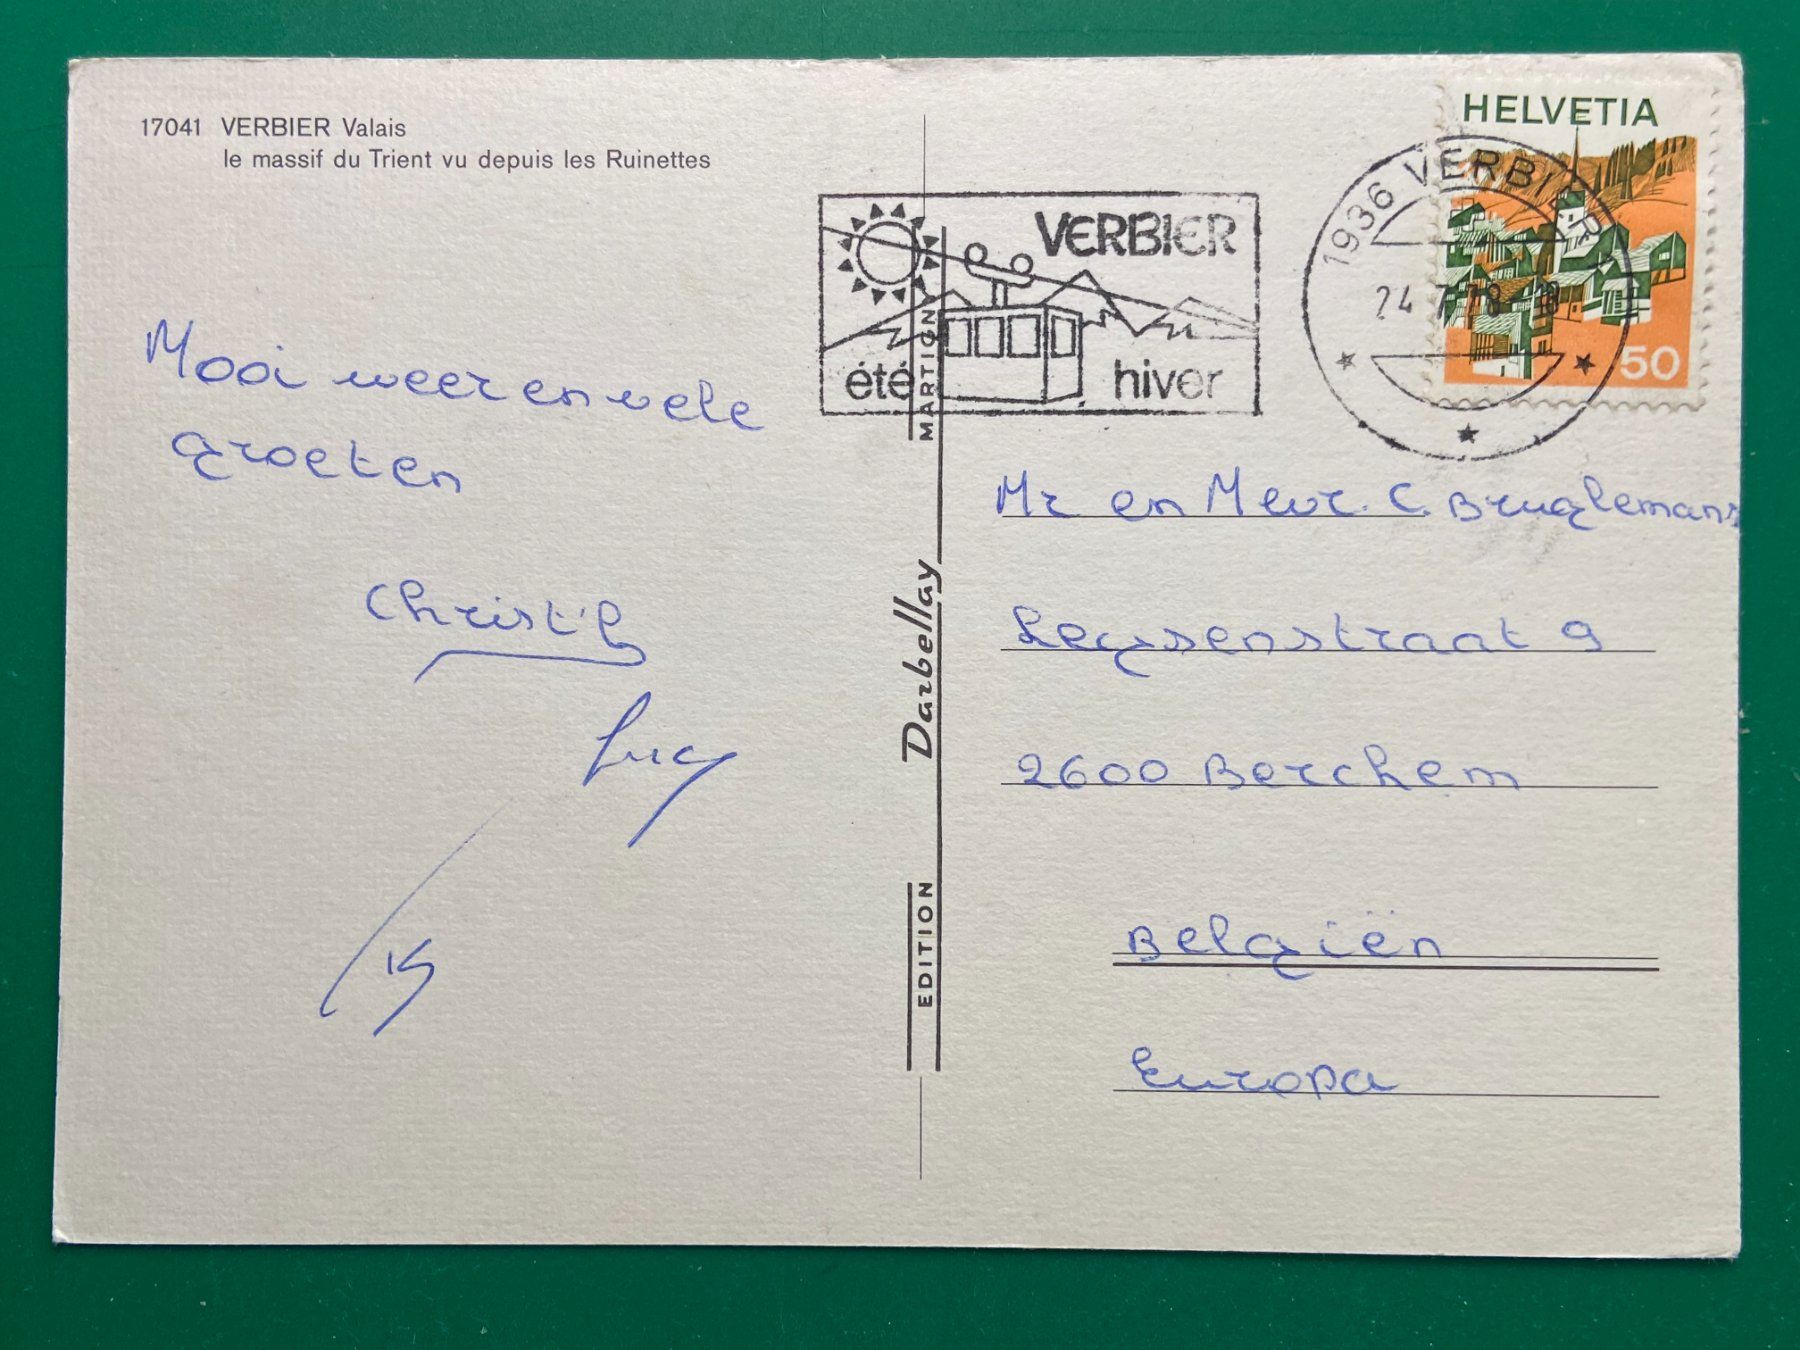 17041 VERBIER Valais
le massif du Trient vu depuis les Ruinettes
Mooi weer en vele
groeten
Christ'l
Lucy
EDITION Darbellay MARTIGNY
VERBIER
été hiver
1936 VERBIER
24.7.78
HELVETIA
50
Mr en Mevr. C. Bruglemans
Leysenstraat 9
2600 Berchem
Belgiën
Europa